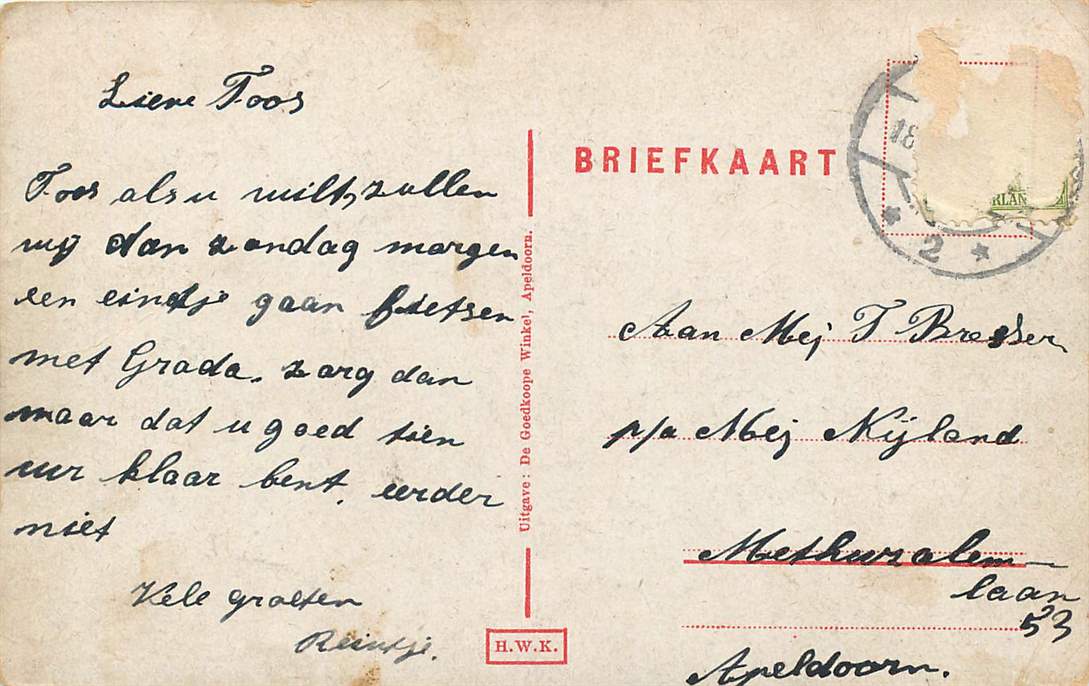 Lieve Toos
Toos als u wilt, zullen
wij dan zondag morgen
een eindje gaan fietsen
met Grada. zorg dan
maar dat u goed tien
uur klaar bent, eerder
niet
Vele groeten
Reintje.
Uitgave: De Goedkoope Winkel, Apeldoorn.
H.W.K.
BRIEFKAART
18
RLAN
2
Aan Mej T Bresser
p/a Mej Nijland
Methusalem-
laan
53
Apeldoorn.